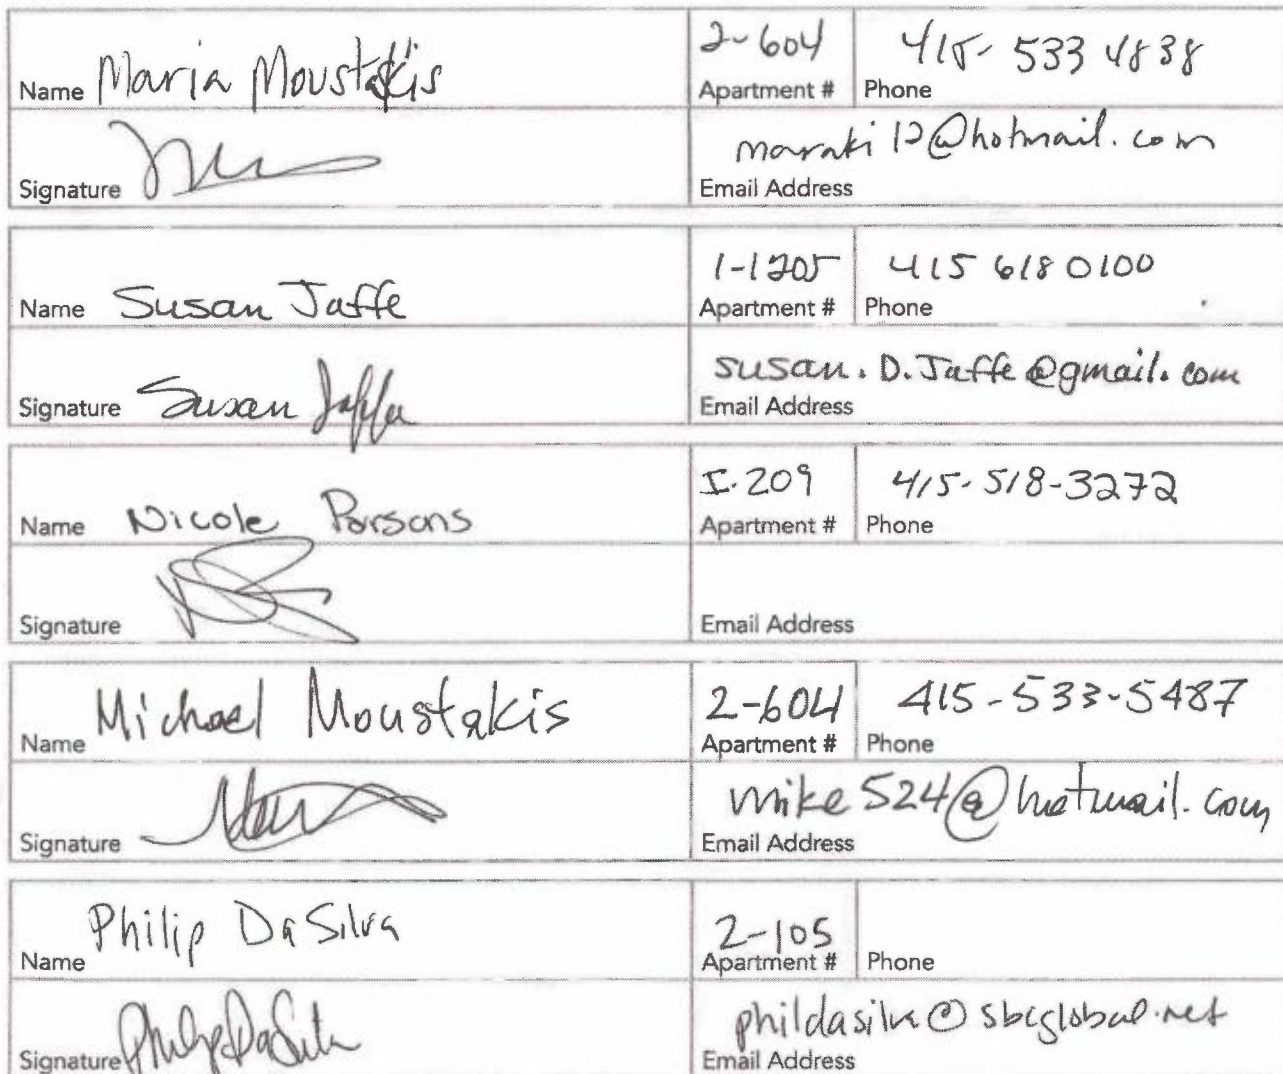 Name Maria Moustakis 2-604 Apartment # 415-533 4838 Phone
Signature maraki12@hotmail.com Email Address
Name Susan Jaffe 1-1205 Apartment # 415 618 0100 Phone
Signature Susan Jaffe susan.D.Jaffe@gmail.com Email Address
Name Nicole Parsons I-209 Apartment # 415-518-3272 Phone
Signature Email Address
Name Michael Moustakis 2-604 Apartment # 415-533-5487 Phone
Signature mike524@hotmail.com Email Address
Name Philip DaSilva 2-105 Apartment # Phone
Signature Philip DaSilva phildasilva@sbcglobal.net Email Address